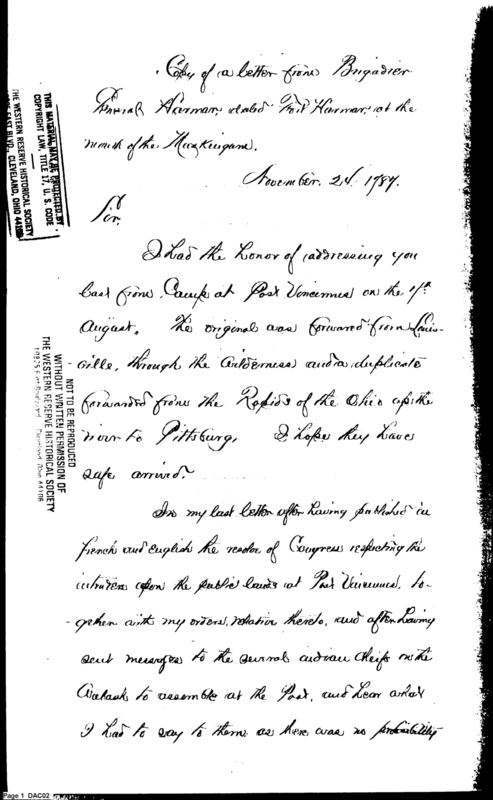 Copy of a letter from Brigadier
General Harmar, dated Fort Harmar, at the
mouth of the Muskingum.
November 24. 1787.
Sir.
I had the honor of addressing you
last from Camp at Post Vincennes on the 7th
August. The original was forwarded from Louis-
ville, through the wilderness and a duplicate
forwarded from the Rapids of the Ohio up the
river to Pittsburg. I hope they have
safe arrived.
In my last letter after having published in
french and english the resolve of Congress respecting the
intruders upon the public lands at Post Vincennes, to-
gether with my orders, relative thereto, and after having
sent messages to the several indian chiefs on the
Wabash to assemble at the Post, and hear what
I had to say to them as there was no probability
THIS MATERIAL MAY BE PROTECTED BY
COPYRIGHT LAW, TITLE 17, U. S. CODE
THE WESTERN RESERVE HISTORICAL SOCIETY
EAST BLVD., CLEVELAND, OHIO 44106
NOT TO BE REPRODUCED
WITHOUT WRITTEN PERMISSION OF
THE WESTERN RESERVE HISTORICAL SOCIETY
10825 East Boulevard Cleveland, Ohio 44106
Page 1 DAC02